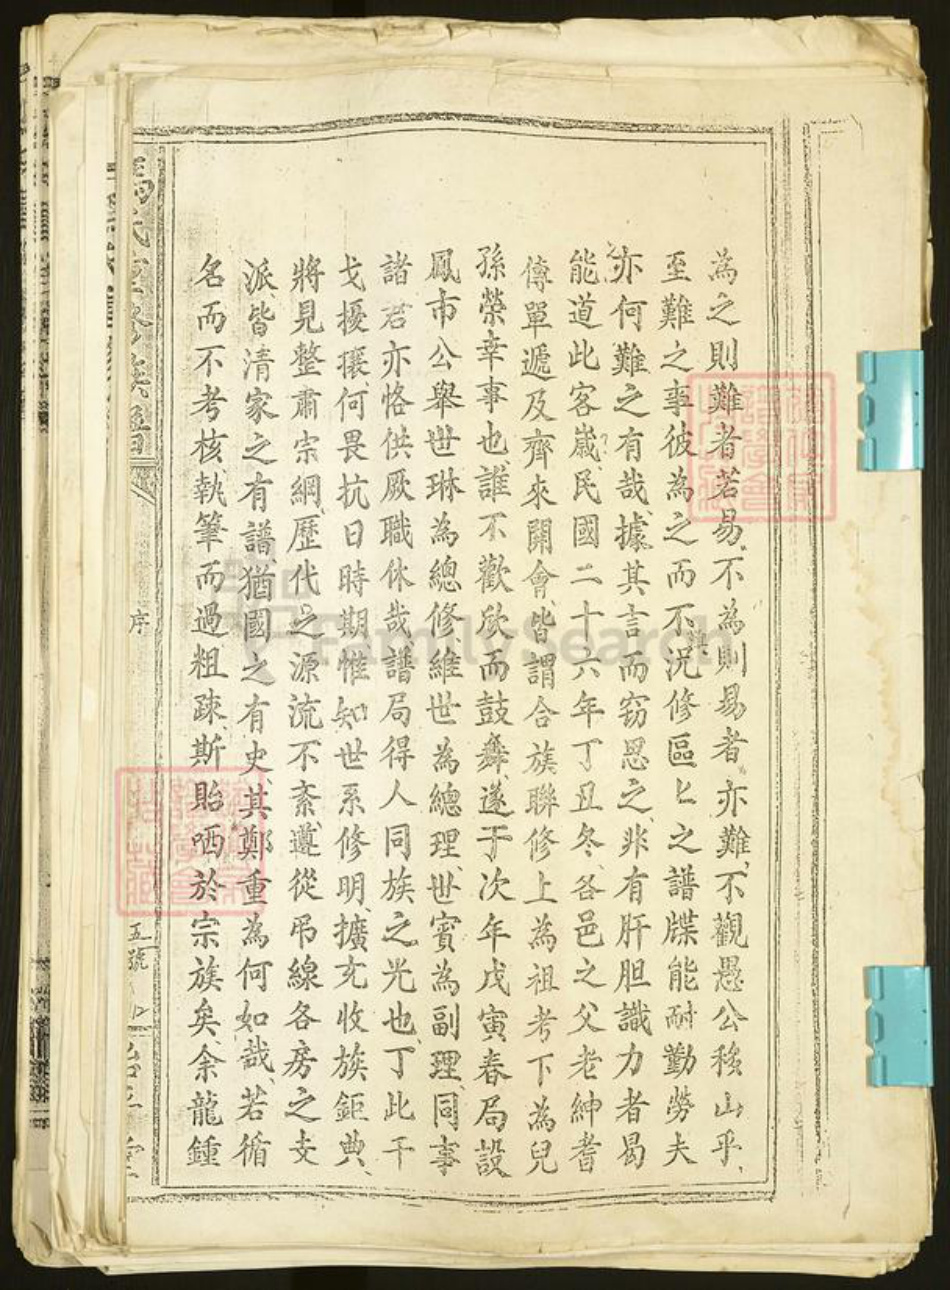 為之則難者若易不為則易者亦難不觀愚公移山乎
至難之事彼為之而不況修區匕之譜牒能耐勤勞夫
亦何難之有哉據其言而窃思之非有肝胆識力者曷
能道此客嵗民國二十六年丁丑冬各邑之父老紳耆
傳單遞及齊來開會皆謂合族聯修上為祖考下為兒
孫榮幸事也誰不歡欣而鼓舞遂于次年戊寅春局設
鳳市公舉世琳為總修維世為總理世賓為副理同事
諸君亦恪供厥職休哉譜局得人同族之光也丁此干
戈擾攘何畏抗日時期惟知世系修明擴充收族鉅典
將見整肅宗綱歷代之源流不紊遵從吊線各房之支
派皆清家之有譜猶國之有史其鄭重為何如哉若循
名而不考核執筆而過粗疎斯貽哂於宗族矣余龍鍾
馮氏
族譜
序
五號
FamilySearch